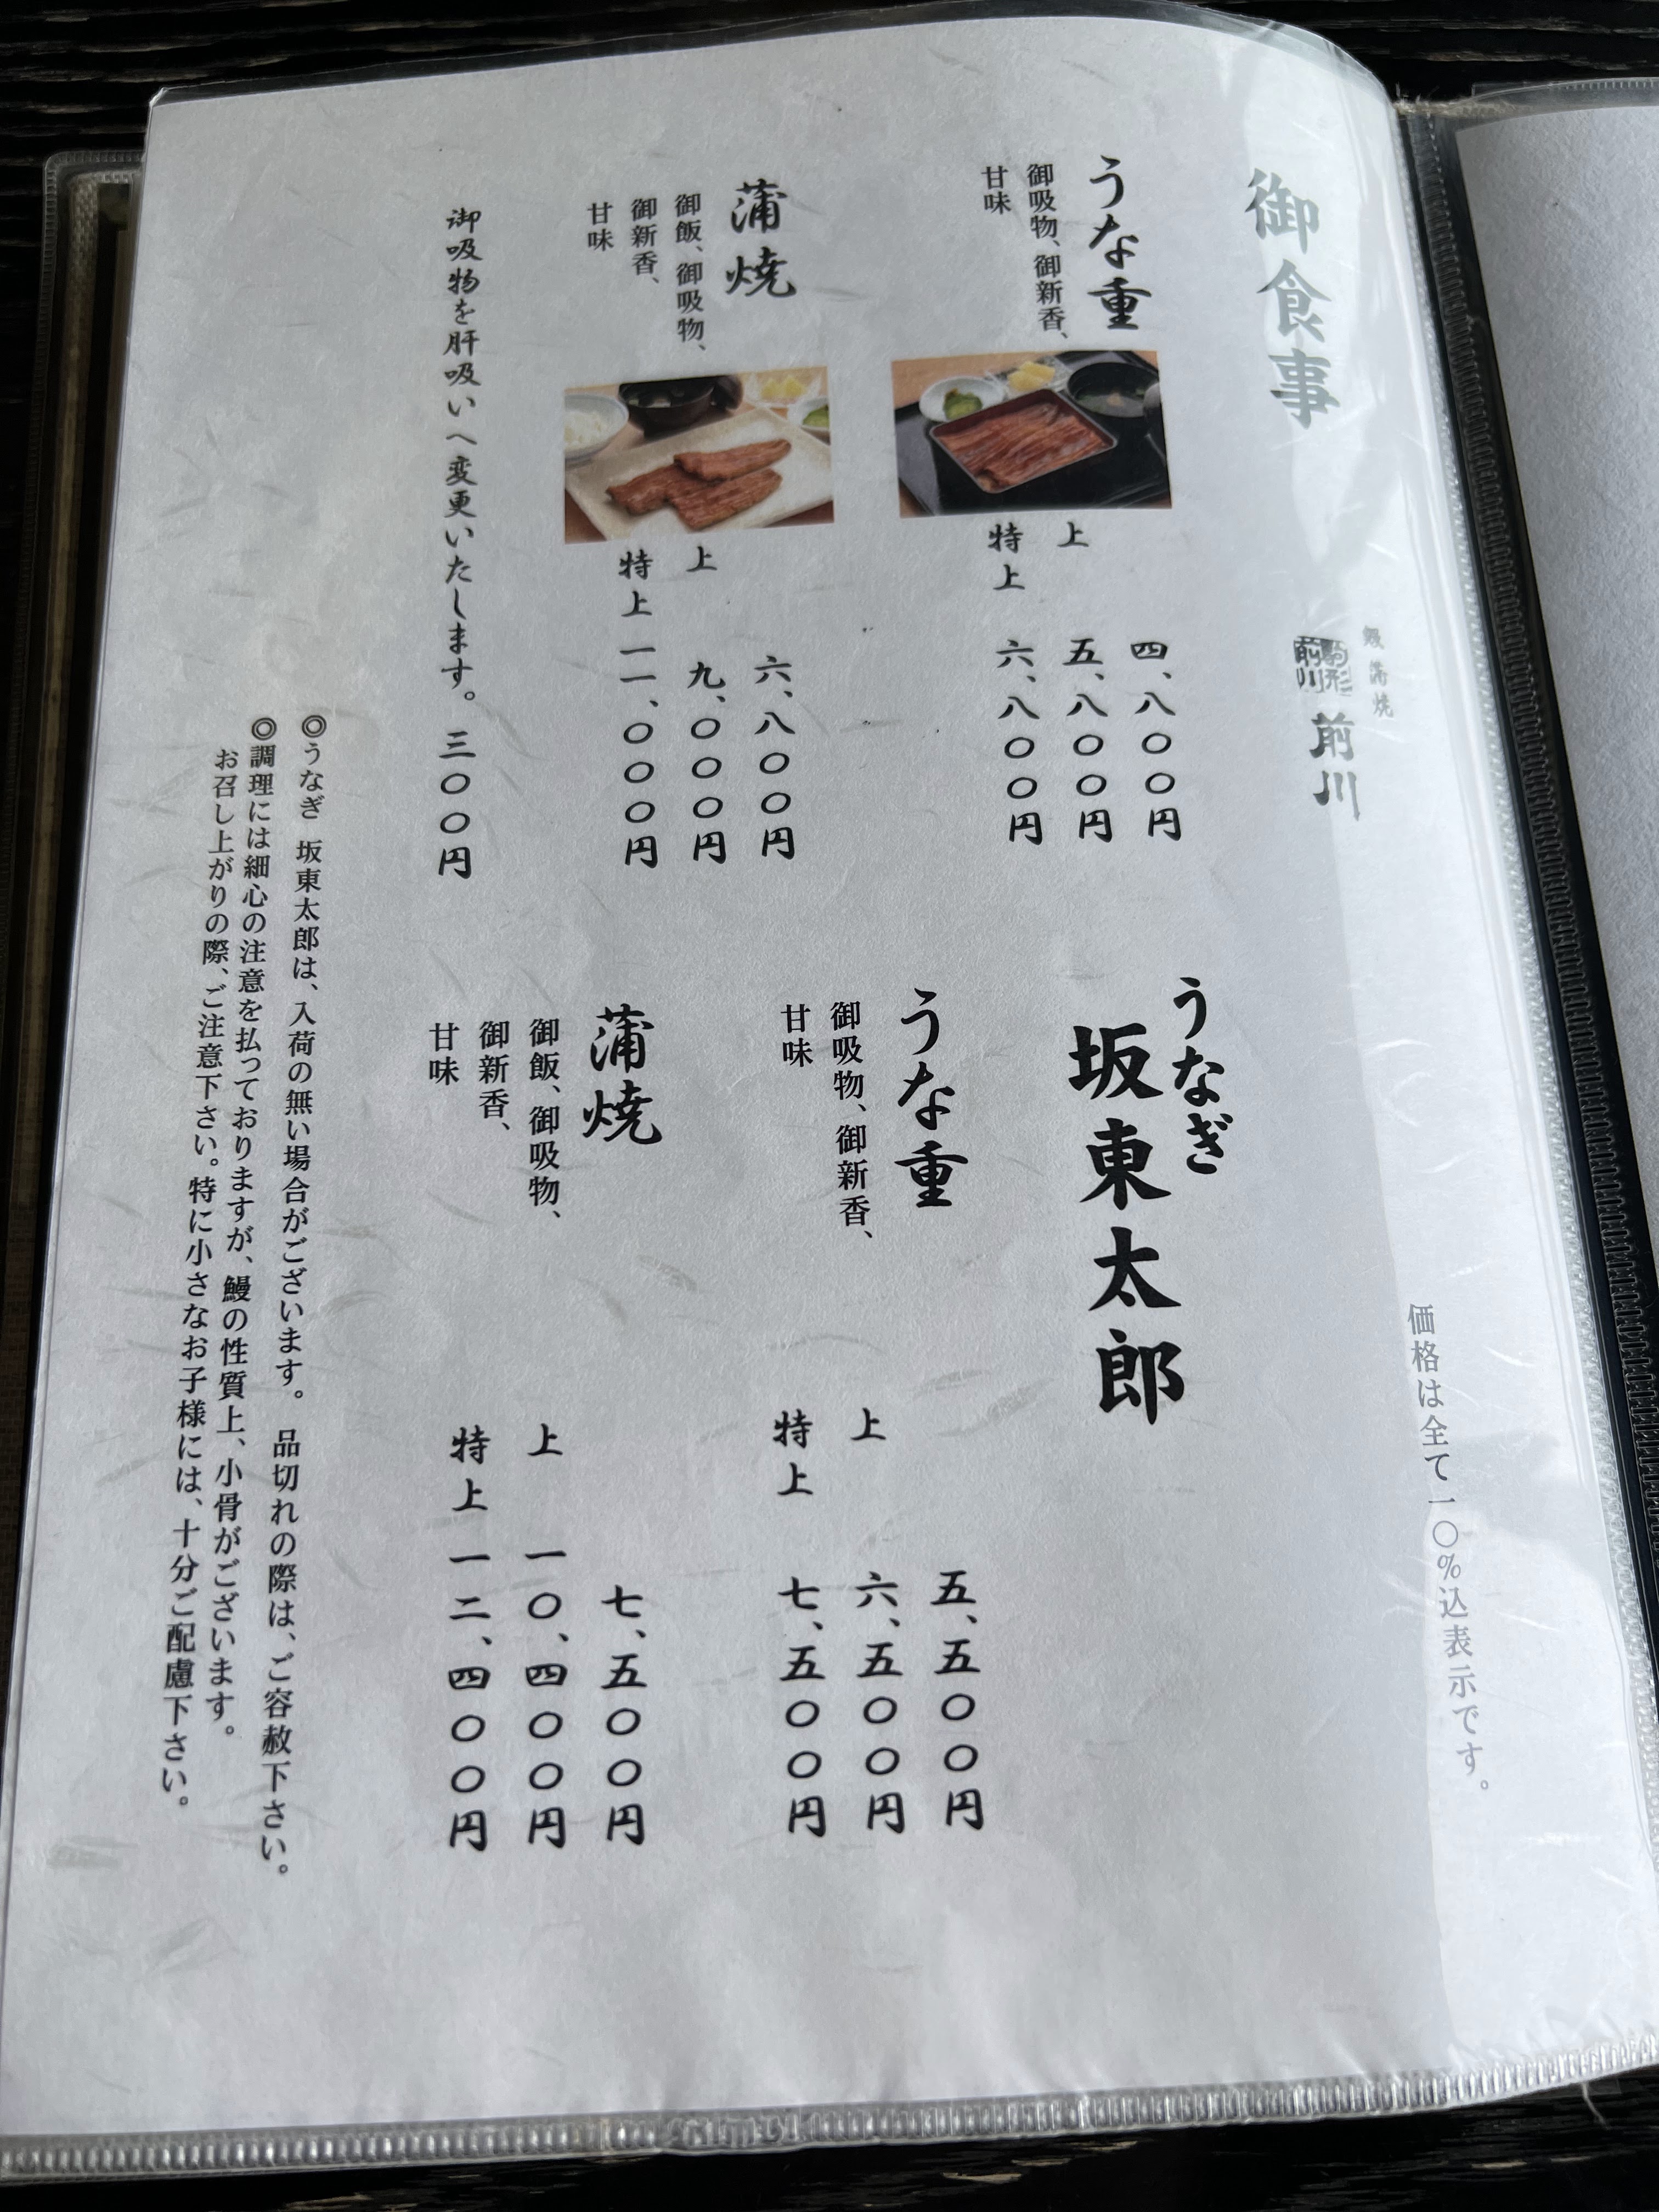 御食事
鰻蒲焼
駒形
前川
前川
価格は全て一〇％込表示です。
うな重
御吸物、御新香、
甘味
四、八〇〇円
上 五、八〇〇円
特上 六、八〇〇円
蒲焼
御飯、御吸物、
御新香、
甘味
六、八〇〇円
上 九、〇〇〇円
特上 一一、〇〇〇円
御吸物を肝吸いへ変更いたします。 三〇〇円
うなぎ
坂東太郎
うな重
御吸物、御新香、
甘味
五、五〇〇円
上 六、五〇〇円
特上 七、五〇〇円
蒲焼
御飯、御吸物、
御新香、
甘味
七、五〇〇円
上 一〇、四〇〇円
特上 一二、四〇〇円
◎うなぎ 坂東太郎は、入荷の無い場合がございます。 品切れの際は、ご容赦下さい。
◎調理には細心の注意を払っておりますが、鰻の性質上、小骨がございます。
お召し上がりの際、ご注意下さい。特に小さなお子様には、十分ご配慮下さい。